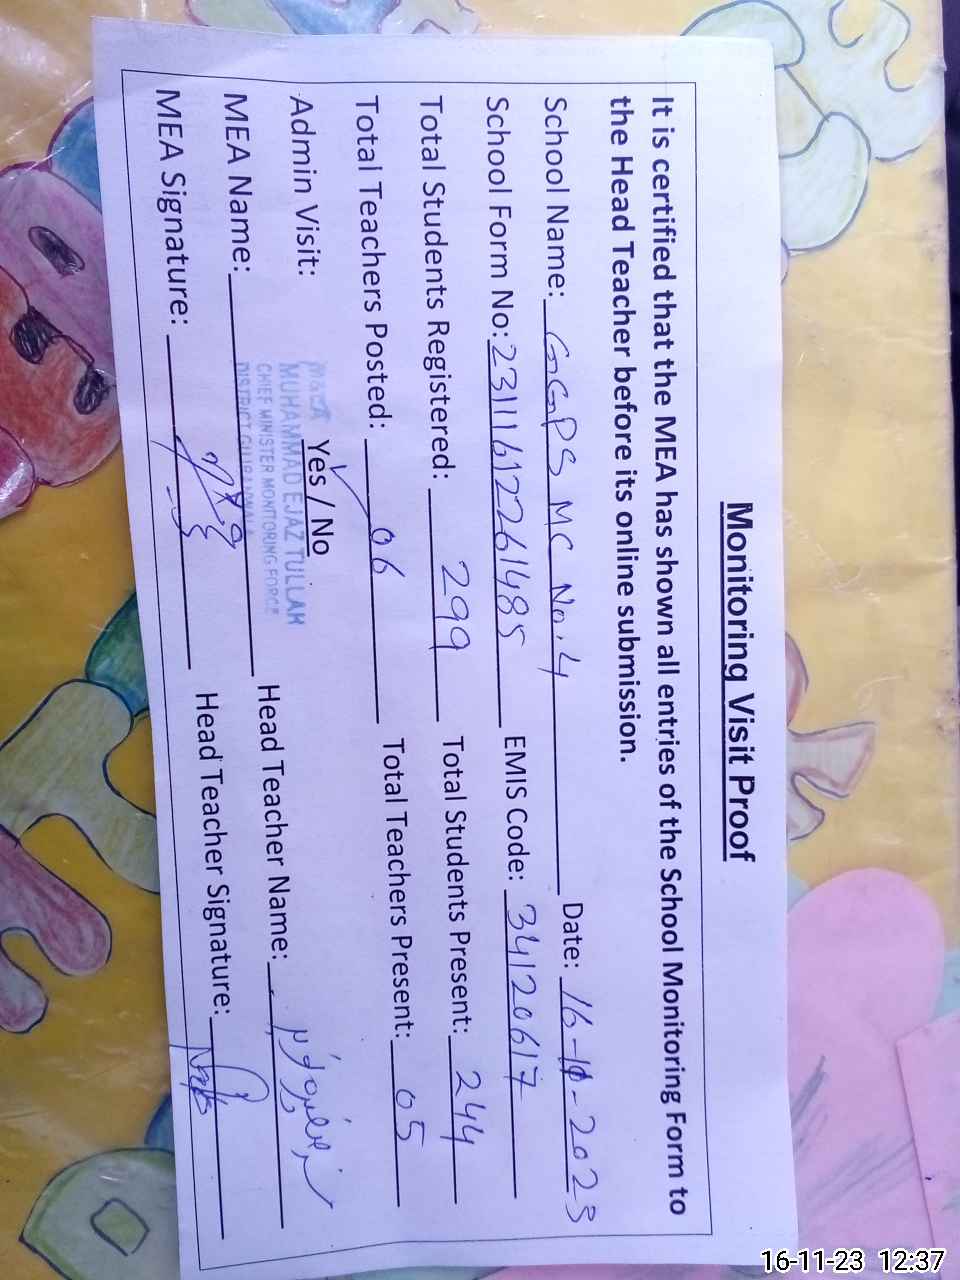 Monitoring Visit Proof
It is certified that the MEA has shown all entries of the School Monitoring Form to
the Head Teacher before its online submission.
School Name: GGPS MC No.4 Date: 16-11-2023
School Form No: 23111612261485 EMIS Code: 34120617
Total Students Registered: 299 Total Students Present: 244
Total Teachers Posted: 06 Total Teachers Present: 05
Admin Visit: Yes / No
MUHAMMAD EJAZ TULLAH
CHIEF MINISTER MONITORING FORCE
MEA Name: Head Teacher Name:
MEA Signature: Head Teacher Signature:
16-11-23 12:37